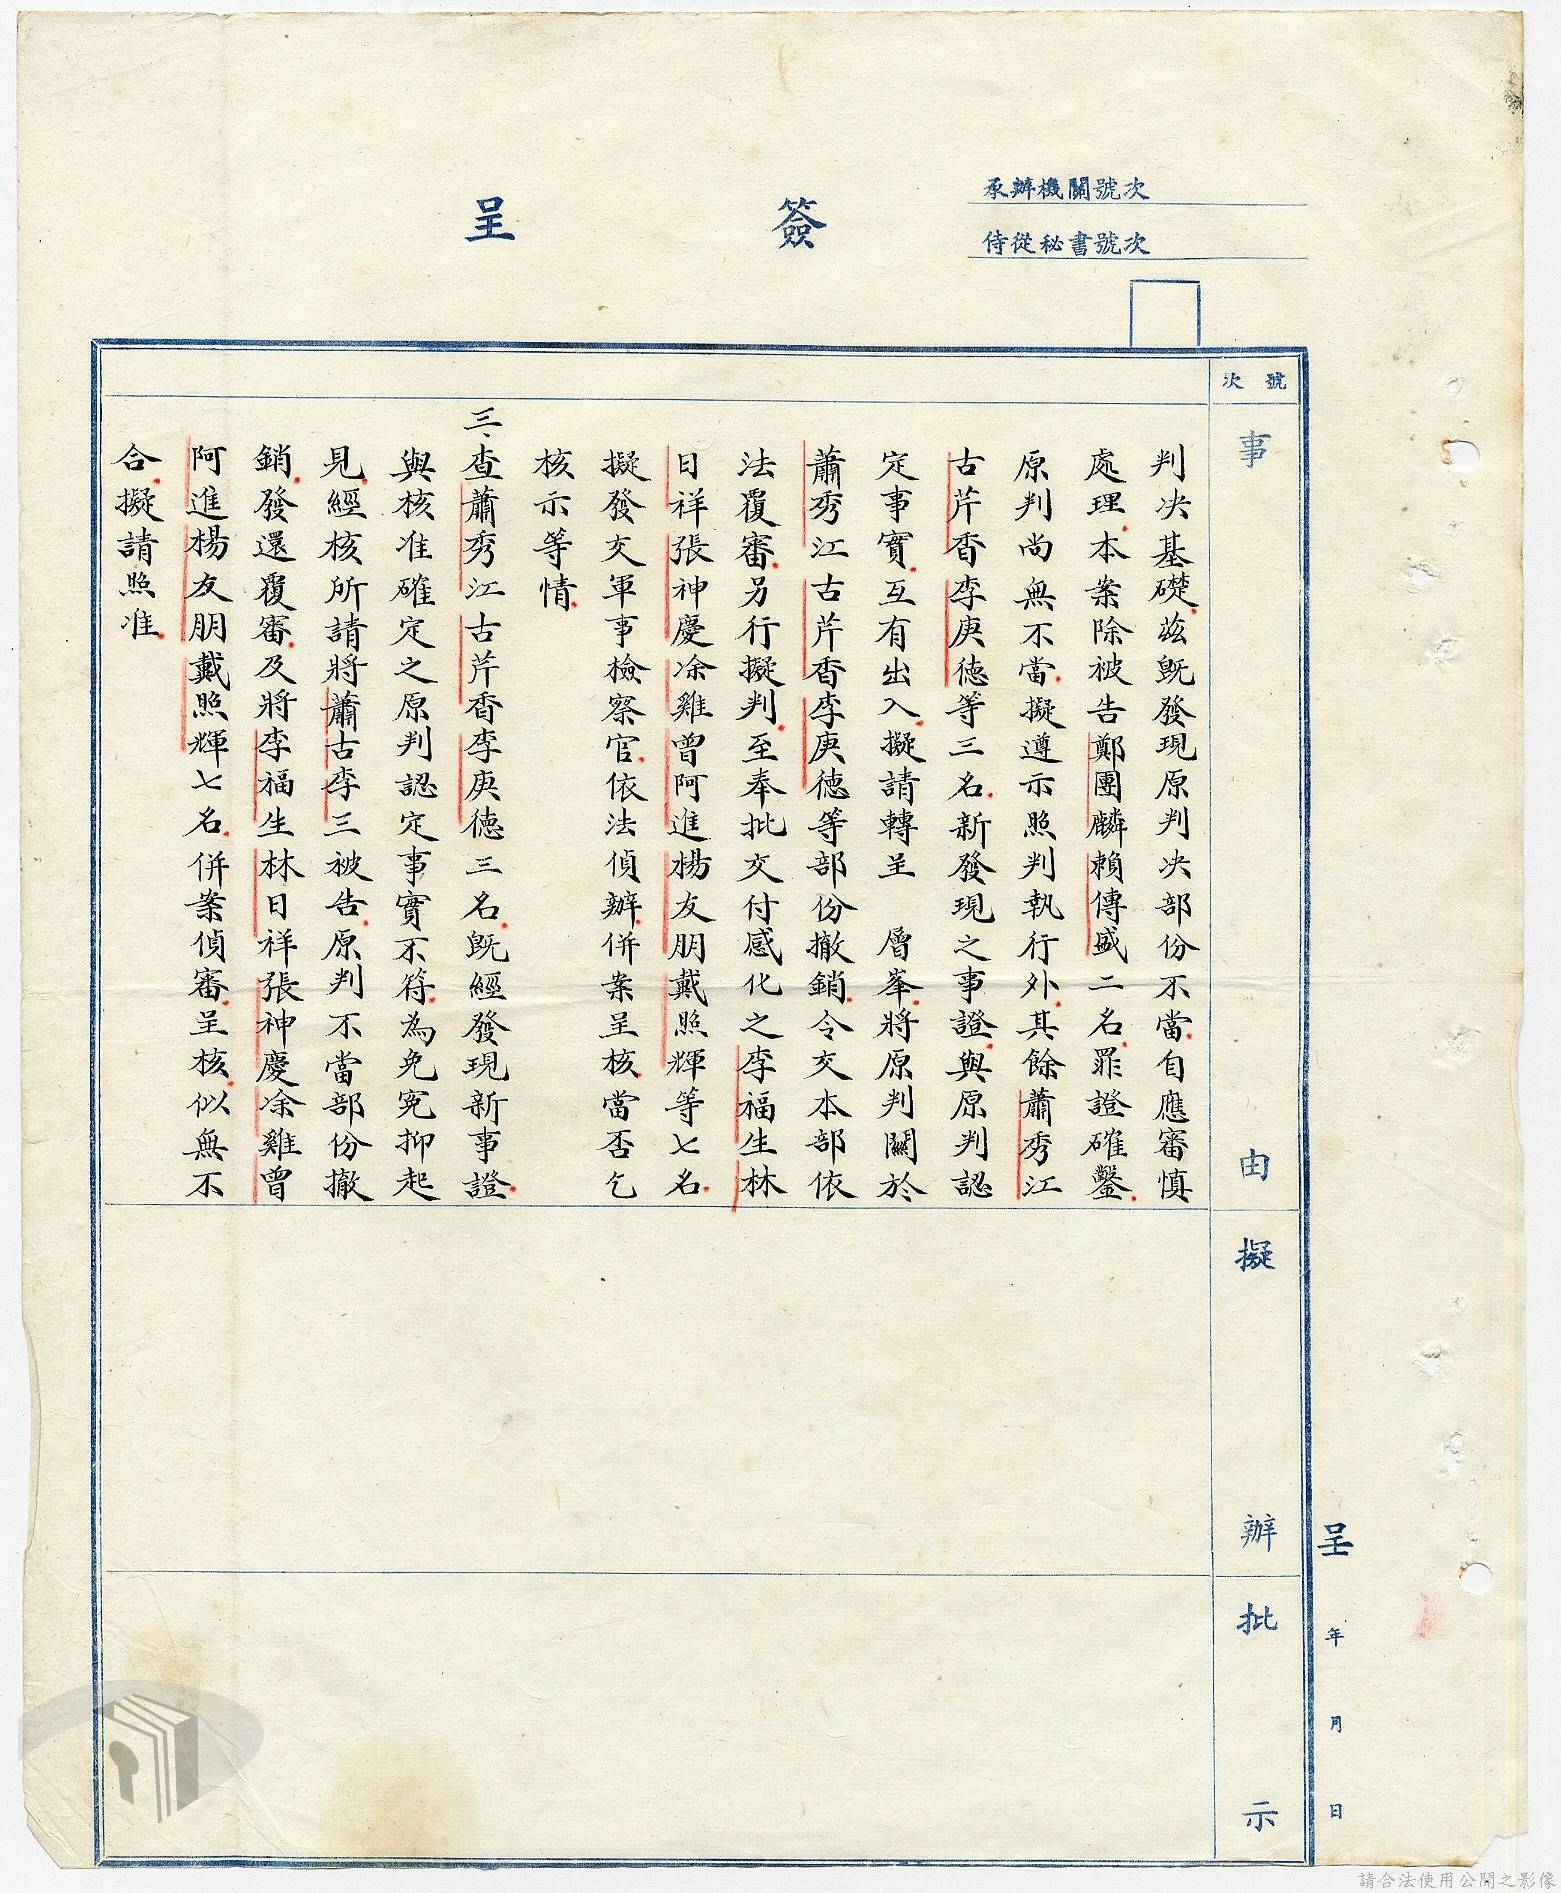 承辦機關號次
侍從秘書號次
簽呈
號次
事由
擬辦
批示
呈
年月日
判決基礎.茲既發現原判決部份不當.自應審慎
處理.本案除被告鄭團麟賴傳盛二名罪證確鑿.
原判尚無不當.擬遵示照判執行外.其餘蕭秀江
古芹香李庚德等三名.新發現之事證.與原判認
定事實.互有出入.擬請轉呈　層峯.將原判關於
蕭秀江古芹香李庚德等部份撤銷.令交本部依
法覆審.另行擬判.至奉批交付感化之李福生林
日祥張神慶凃雞曾阿進楊友朋戴照輝等七名.
擬發交軍事檢察官.依法偵辦.併案呈核.當否乞
核示等情.
三、查蕭秀江古芹香李庚德三名.既經發現新事證.
與核准確定之原判認定事實不符.為免冤抑起
見.經核所請將蕭古李三被告.原判不當部份撤
銷.發還覆審.及將李福生林日祥張神慶凃雞曾
阿進楊友朋戴照輝七名.併案偵審.呈核.似無不
合.擬請照准.
請合法使用公開之影像